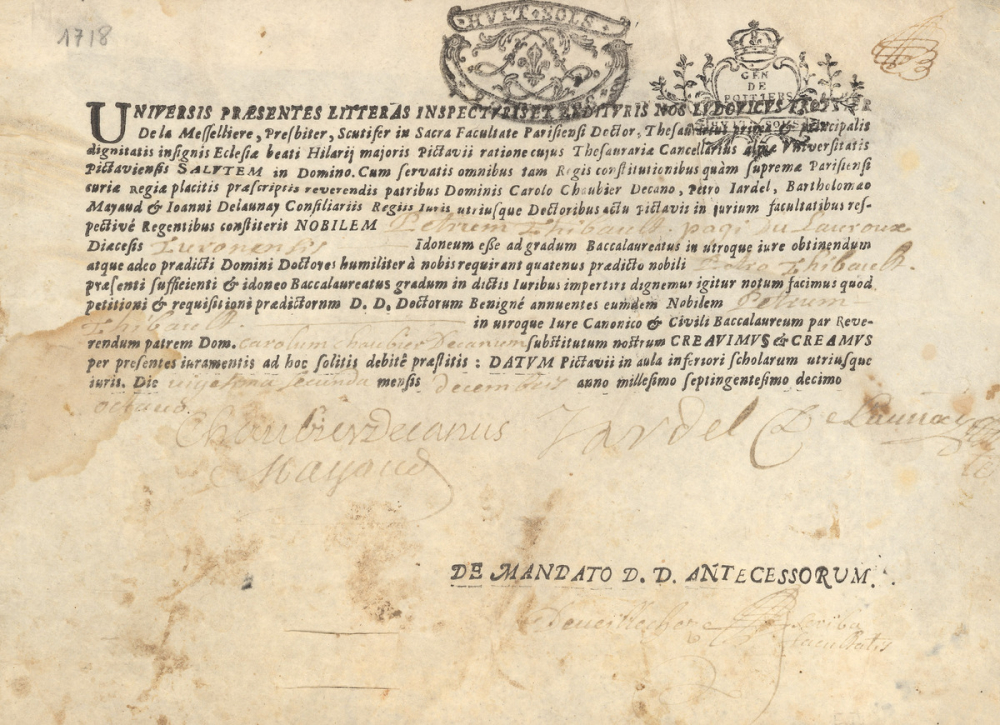 1718
HVIT SOLS
GEN
DE
POITIERS
HVIT SOLS
UNIVERSIS PRÆSENTES LITTERAS INSPECTVRIS ET AVDITVRIS NOS LVDOVICVS
De la Messelliere, Presbiter, Scutifer in Sacra Facultate Parisiensi Doctor, Thesaurarius primæ & principalis
dignitatis insignis Eclesiæ beati Hilarij majoris Pictavii ratione cujus Thesaurariæ Cancellarius almæ Vniversitatis
Pictaviensis SALVTEM in Domino. Cum servatis omnibus tam Regis constitutionibus quàm supremæ Parisiensi
curiæ Regiæ placitis præscriptis reverendis patribus Dominis Carolo Chaubier Decano, Petro Iardel, Bartholomæo
Mayaud & Ioanni Delaunay Consiliariis Regiis Iuris utriusque Doctoribus actu Pictavis in jurium facultatibus res-
pectivè Regentibus constiterit NOBILEM Petrum Thibault. pagi du Lauroux
Diæcesis Turonensis Idoneum esse ad gradum Baccalaureatus in utroque iure obtinendum
atque adeo prædicti Domini Doctores humiliter à nobis requirant quatenus prædicto nobili Petro Thibault.
præsenti sufficienti & idoneo Baccalaureatus gradum in dictis Iuribus impertiri dignemur igitur notum facimus quod
petitioni & requisitioni prædictorum D. D. Doctorum Benignè annuentes eumdem Nobilem Petrum
Thibault. in utroque Iure Canonico & Civili Baccalaureum par Reve-
rendum patrem Dom. Carolum Chaubier Decanum substitutum nostrum CREAVIMVS & CREAMVS
per presentes iuramentis ad hoc solitis debitè præstitis : DATVM Pictavii in aula inferiori scholarum utriusque
iuris. Die vigesima secunda mensis decembris anno millesimo septingentesimo decimo
octavo.
Chaubier Decanus Jardel De Launay
Mayaud
DE MANDATO D. D. ANTECESSORUM.
scriba
facultatis